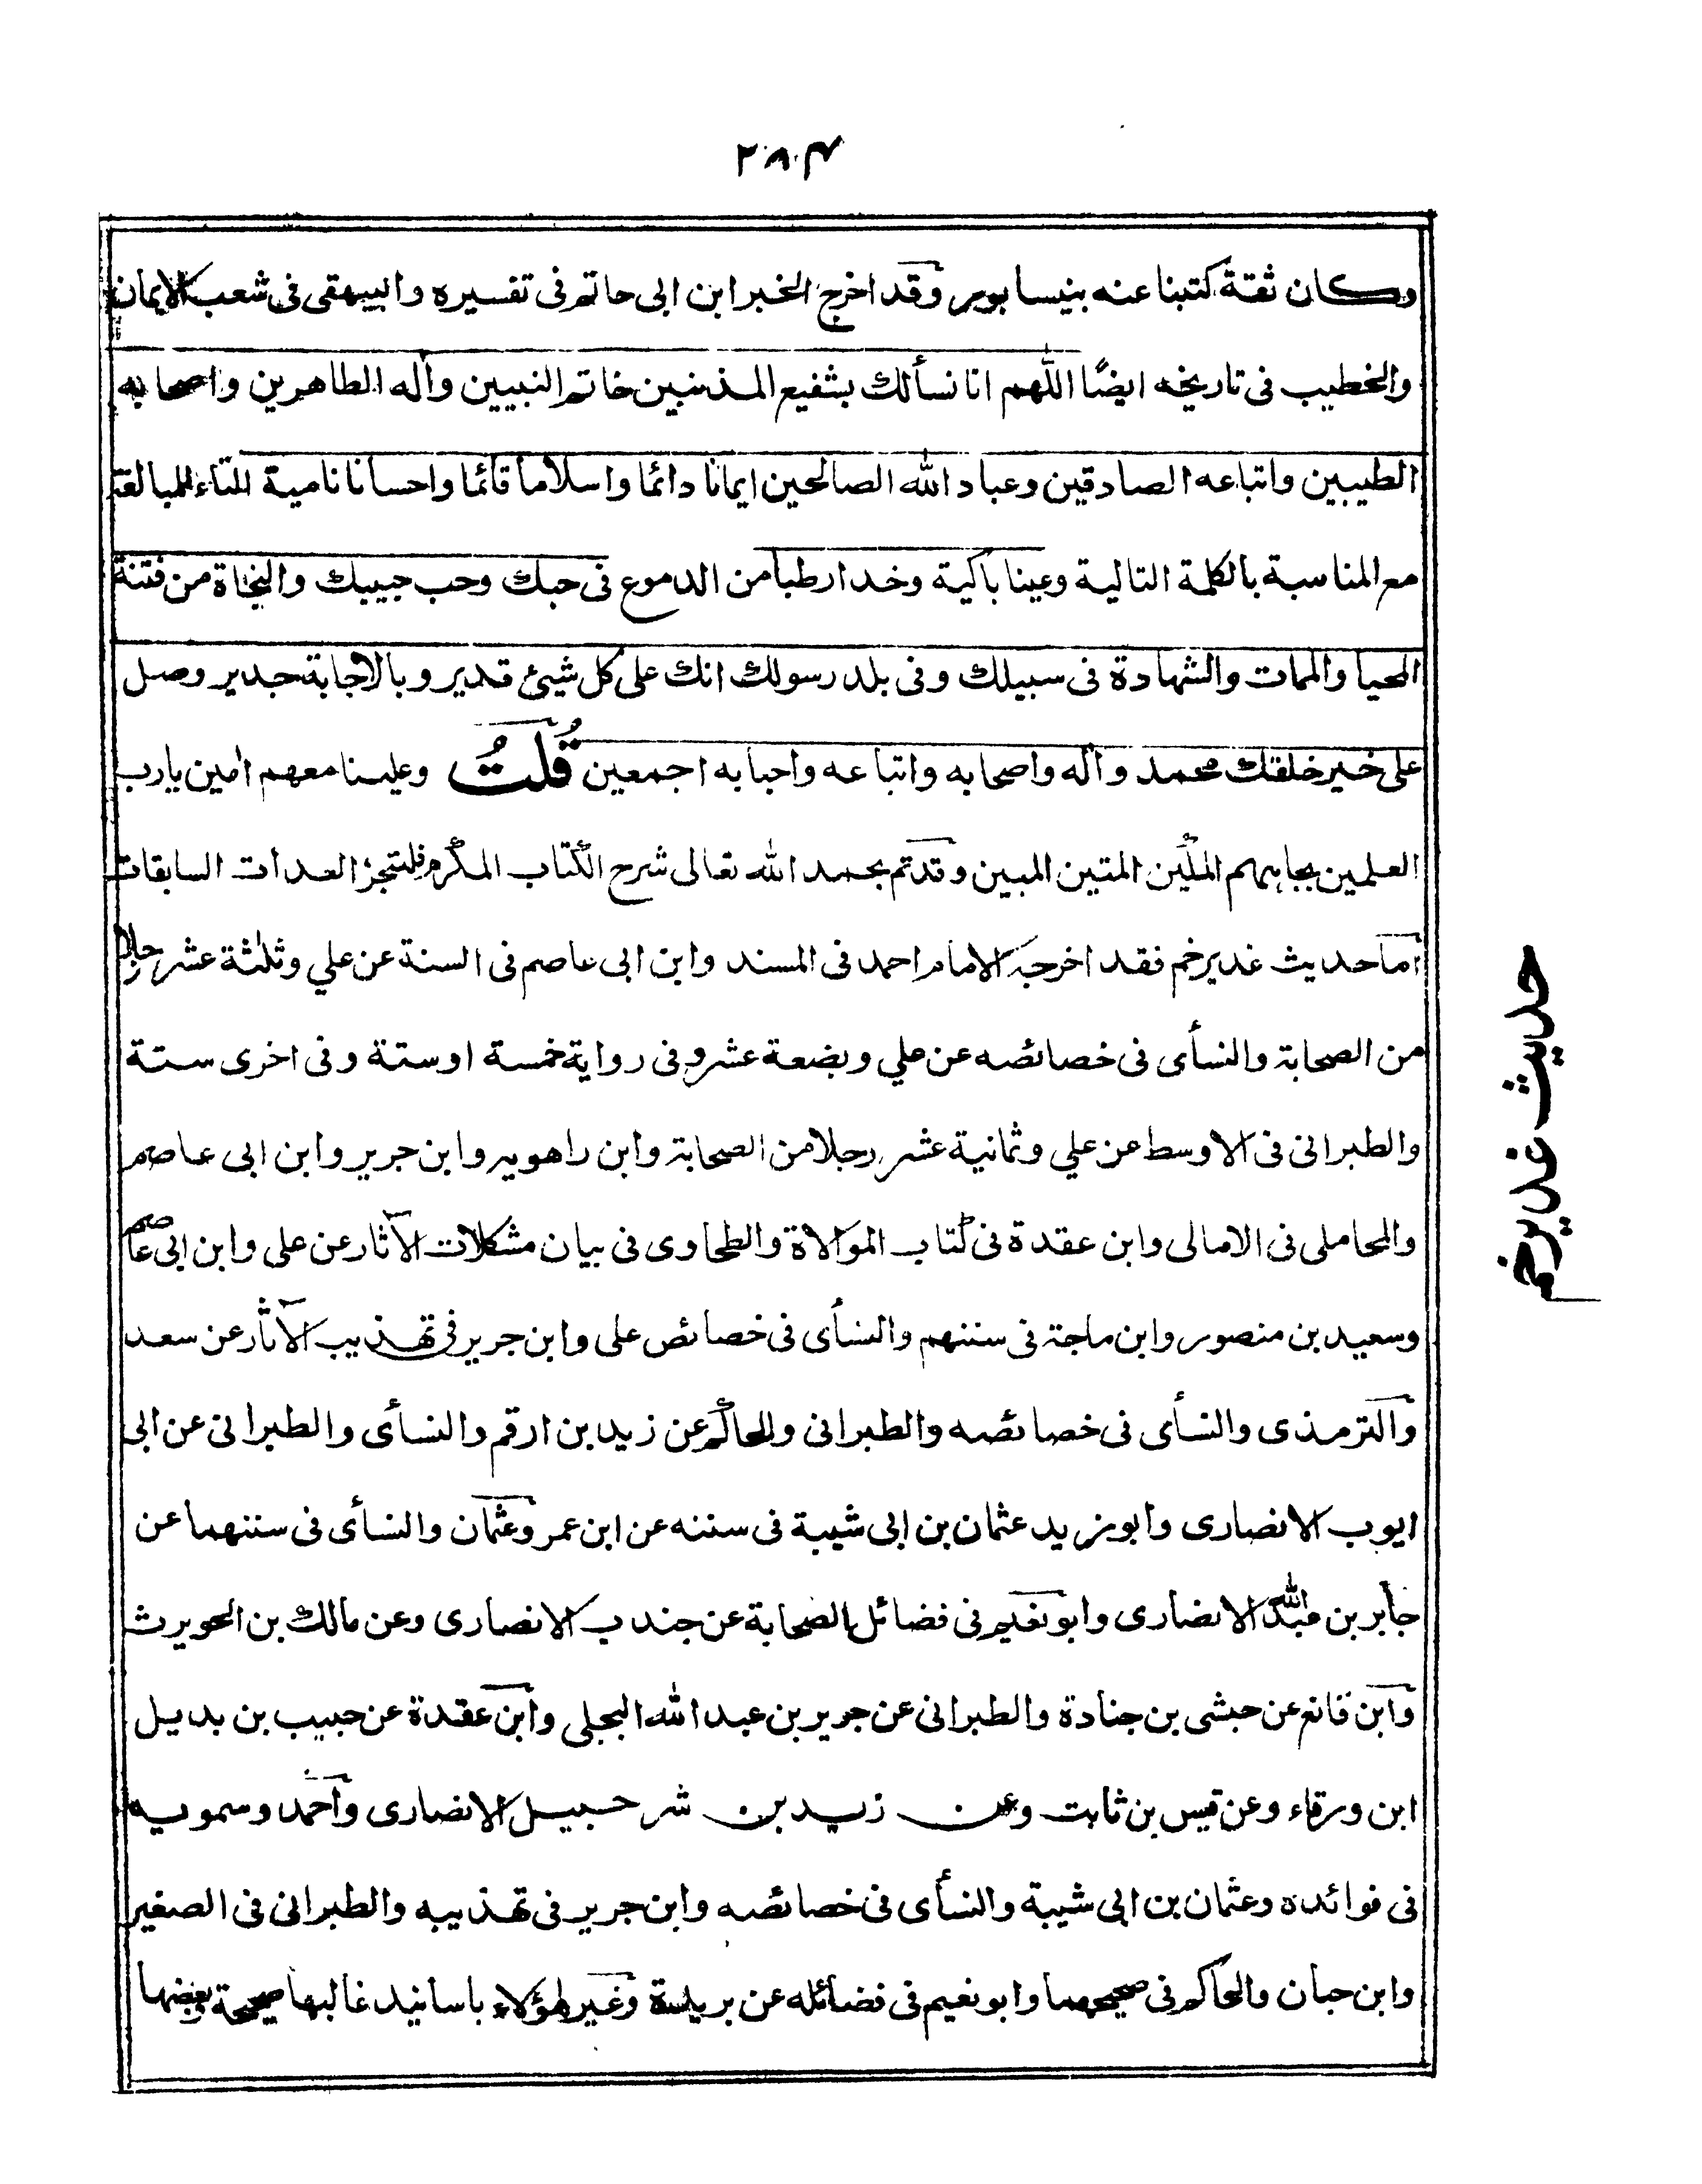 ۲۷۴
وكان ثقة كتبنا عنه بنيسابور وقد اخرج الخبر ابن ابى حاتم فى تفسيره والبيهقى فى شعب الايمان
والخطيب فى تاريخه ايضًا اللّٰهم انا نسألك بشفيع المذنبين خاتم النبيين وأله الطاهرين واصحابه
الطيبين واتباعه الصادقين وعباد الله الصالحين ايمانا دائما واسلاما قائما واحسانا نامية التاء للمبالغة
مع المناسبة بالكلمة التالية وعينا باكية وخدا رطبا من الدموع فى حبك وحب حبيبك والنجاة من فتنة
المحيا والممات والشهادة فى سبيلك وفى بلد رسولك انك على كل شيئ قدير وبالاجابة جدير وصل
على خير خلقك محمد وأله واصحابه واتباعه واحبابه اجمعين قُلتُ وعلينا معهم امين يارب
العلمين بجاههم المكين المتين المبين وقد تم بحمد الله تعالى شرح الكتاب المكرم فلننجز العدات السابقات
اما حديث غدير خم فقد اخرجه الامام احمد فى المسند وابن ابى عاصم فى السنة عن علي وثلٰثة عشر رجلا
من الصحابة والنسأى فى خصائصه عن علي وبضعة عشر وفى رواية خمسة اوستة وفى اخرى ستة
والطبرانى فى الاوسط عن علي وثمانية عشر رجلا من الصحابة وابن راهويه وابن جرير وابن ابى عاصم
والمحاملى فى الامالى وابن عقدة فى كتاب الموالاة والطحاوى فى بيان مشكلات الآثار عن على وابن ابى عاصم
وسعيد بن منصور وابن ماجة فى سننهم والنسأى فى خصائص على وابن جرير فى تهذيب الآثار عن سعد
والترمذى والنسأى فى خصائصه والطبرانى والحاكم عن زيد بن ارقم والنسأى والطبرانى عن ابى
ايوب الانصارى وابو زيد عثمان بن ابى شيبة فى سننه عن ابن عمر وعثمان والنسأى فى سننهما عن
جابر بن عبد الله الانصارى وابو نعيم فى فضائل الصحابة عن جندب الانصارى وعن مالك بن الحويرث
وابن قانع عن حبشى بن جنادة والطبرانى عن جرير بن عبد الله البجلى وابن عقدة عن حبيب بن بديل
ابن ورقاء وعن قيس بن ثابت وعن زيد بن شرحبيل الانصارى واحمد وسمويه
فى فوائده وعثمان بن ابى شيبة والنسأى فى خصائصه وابن جرير فى تهذيبه والطبرانى فى الصغير
وابن حبان والحاكم فى صحيحهما وابو نعيم فى فضائله عن بريدة وغير هٰؤلاء باسانيد غالبها صحيحة بعضها
حديث غدير خم